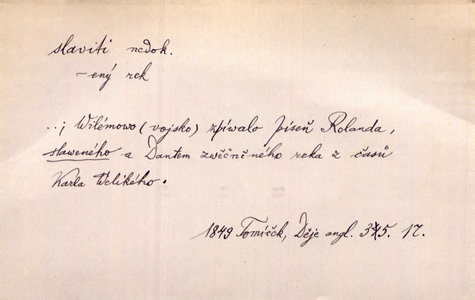 slaviti nedok.
-ený rek
..; Wilémowo (vojsko) zpíwalo píseň Rolanda,
slaweného a Dantem zwěčněného reka z časů
Karla Welikého.
1849 Tomíček, Děje angl. 17.